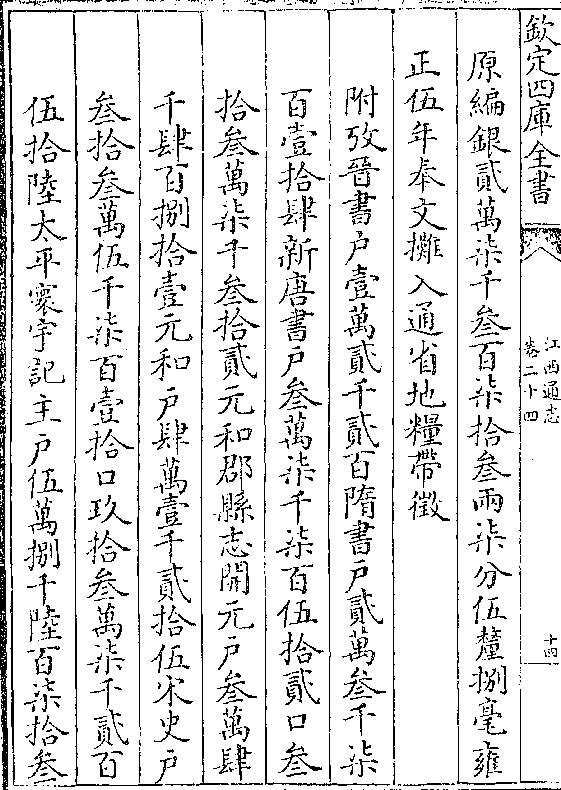 欽定四庫全書
江西通志
卷二十四
十四
原編銀貳萬柒千叁百柒拾叁兩柒分伍釐捌毫雍
正伍年奉文攤入通省地糧帶徵
附攷晉書户壹萬貳千貳百隋書户貳萬叁千柒
百壹拾肆新唐書户叁萬柒千柒百伍拾貳口叁
拾叁萬柒千叁拾貳元和郡縣志開元户叁萬肆
千肆百捌拾壹元和户肆萬壹千貳拾伍宋史户
叁拾叁萬伍千柒百壹拾口玖拾叁萬柒千貳百
伍拾陸太平寰宇記主户伍萬捌千陸百柒拾叁